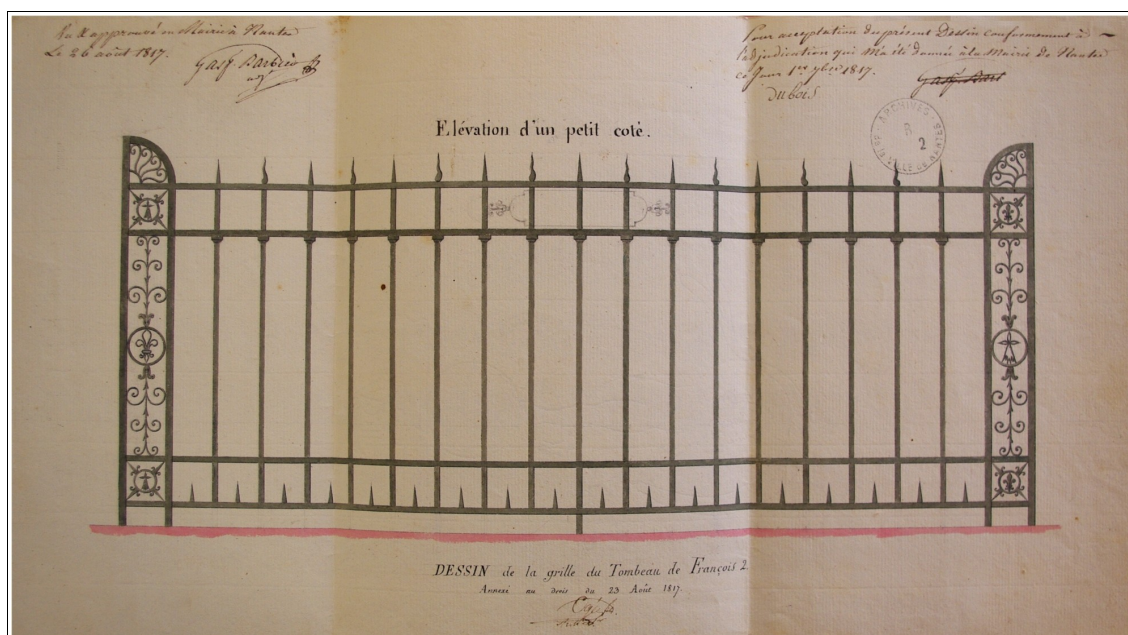 Vu & approuvé en Mairie à Nantes
Le 26 août 1817.
Pour acceptation du présent Dessin conformement à
l'adjudication qui m'a été donnée à la Mairie de Nantes
ce jour 1er 7bre 1817.
Dubois
ARCHIVES
DE LA VILLE DE NANTES
2
Elévation d'un petit coté.
DESSIN de la grille du Tombeau de François 2.
Annexé au devis du 23 Août 1817.